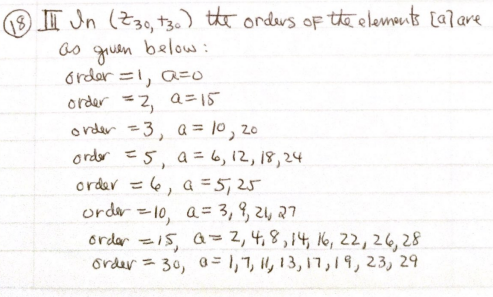 (18) III In (Z30, +30) the orders of the elements [a] are
as given below:
order = 1, a=0
order = 2, a=15
order = 3, a = 10, 20
order = 5, a = 6, 12, 18, 24
order = 6, a = 5, 25
order = 10, a = 3, 9, 21, 27
order = 15, a = 2, 4, 8, 14, 16, 22, 26, 28
order = 30, a = 1, 7, 11, 13, 17, 19, 23, 29